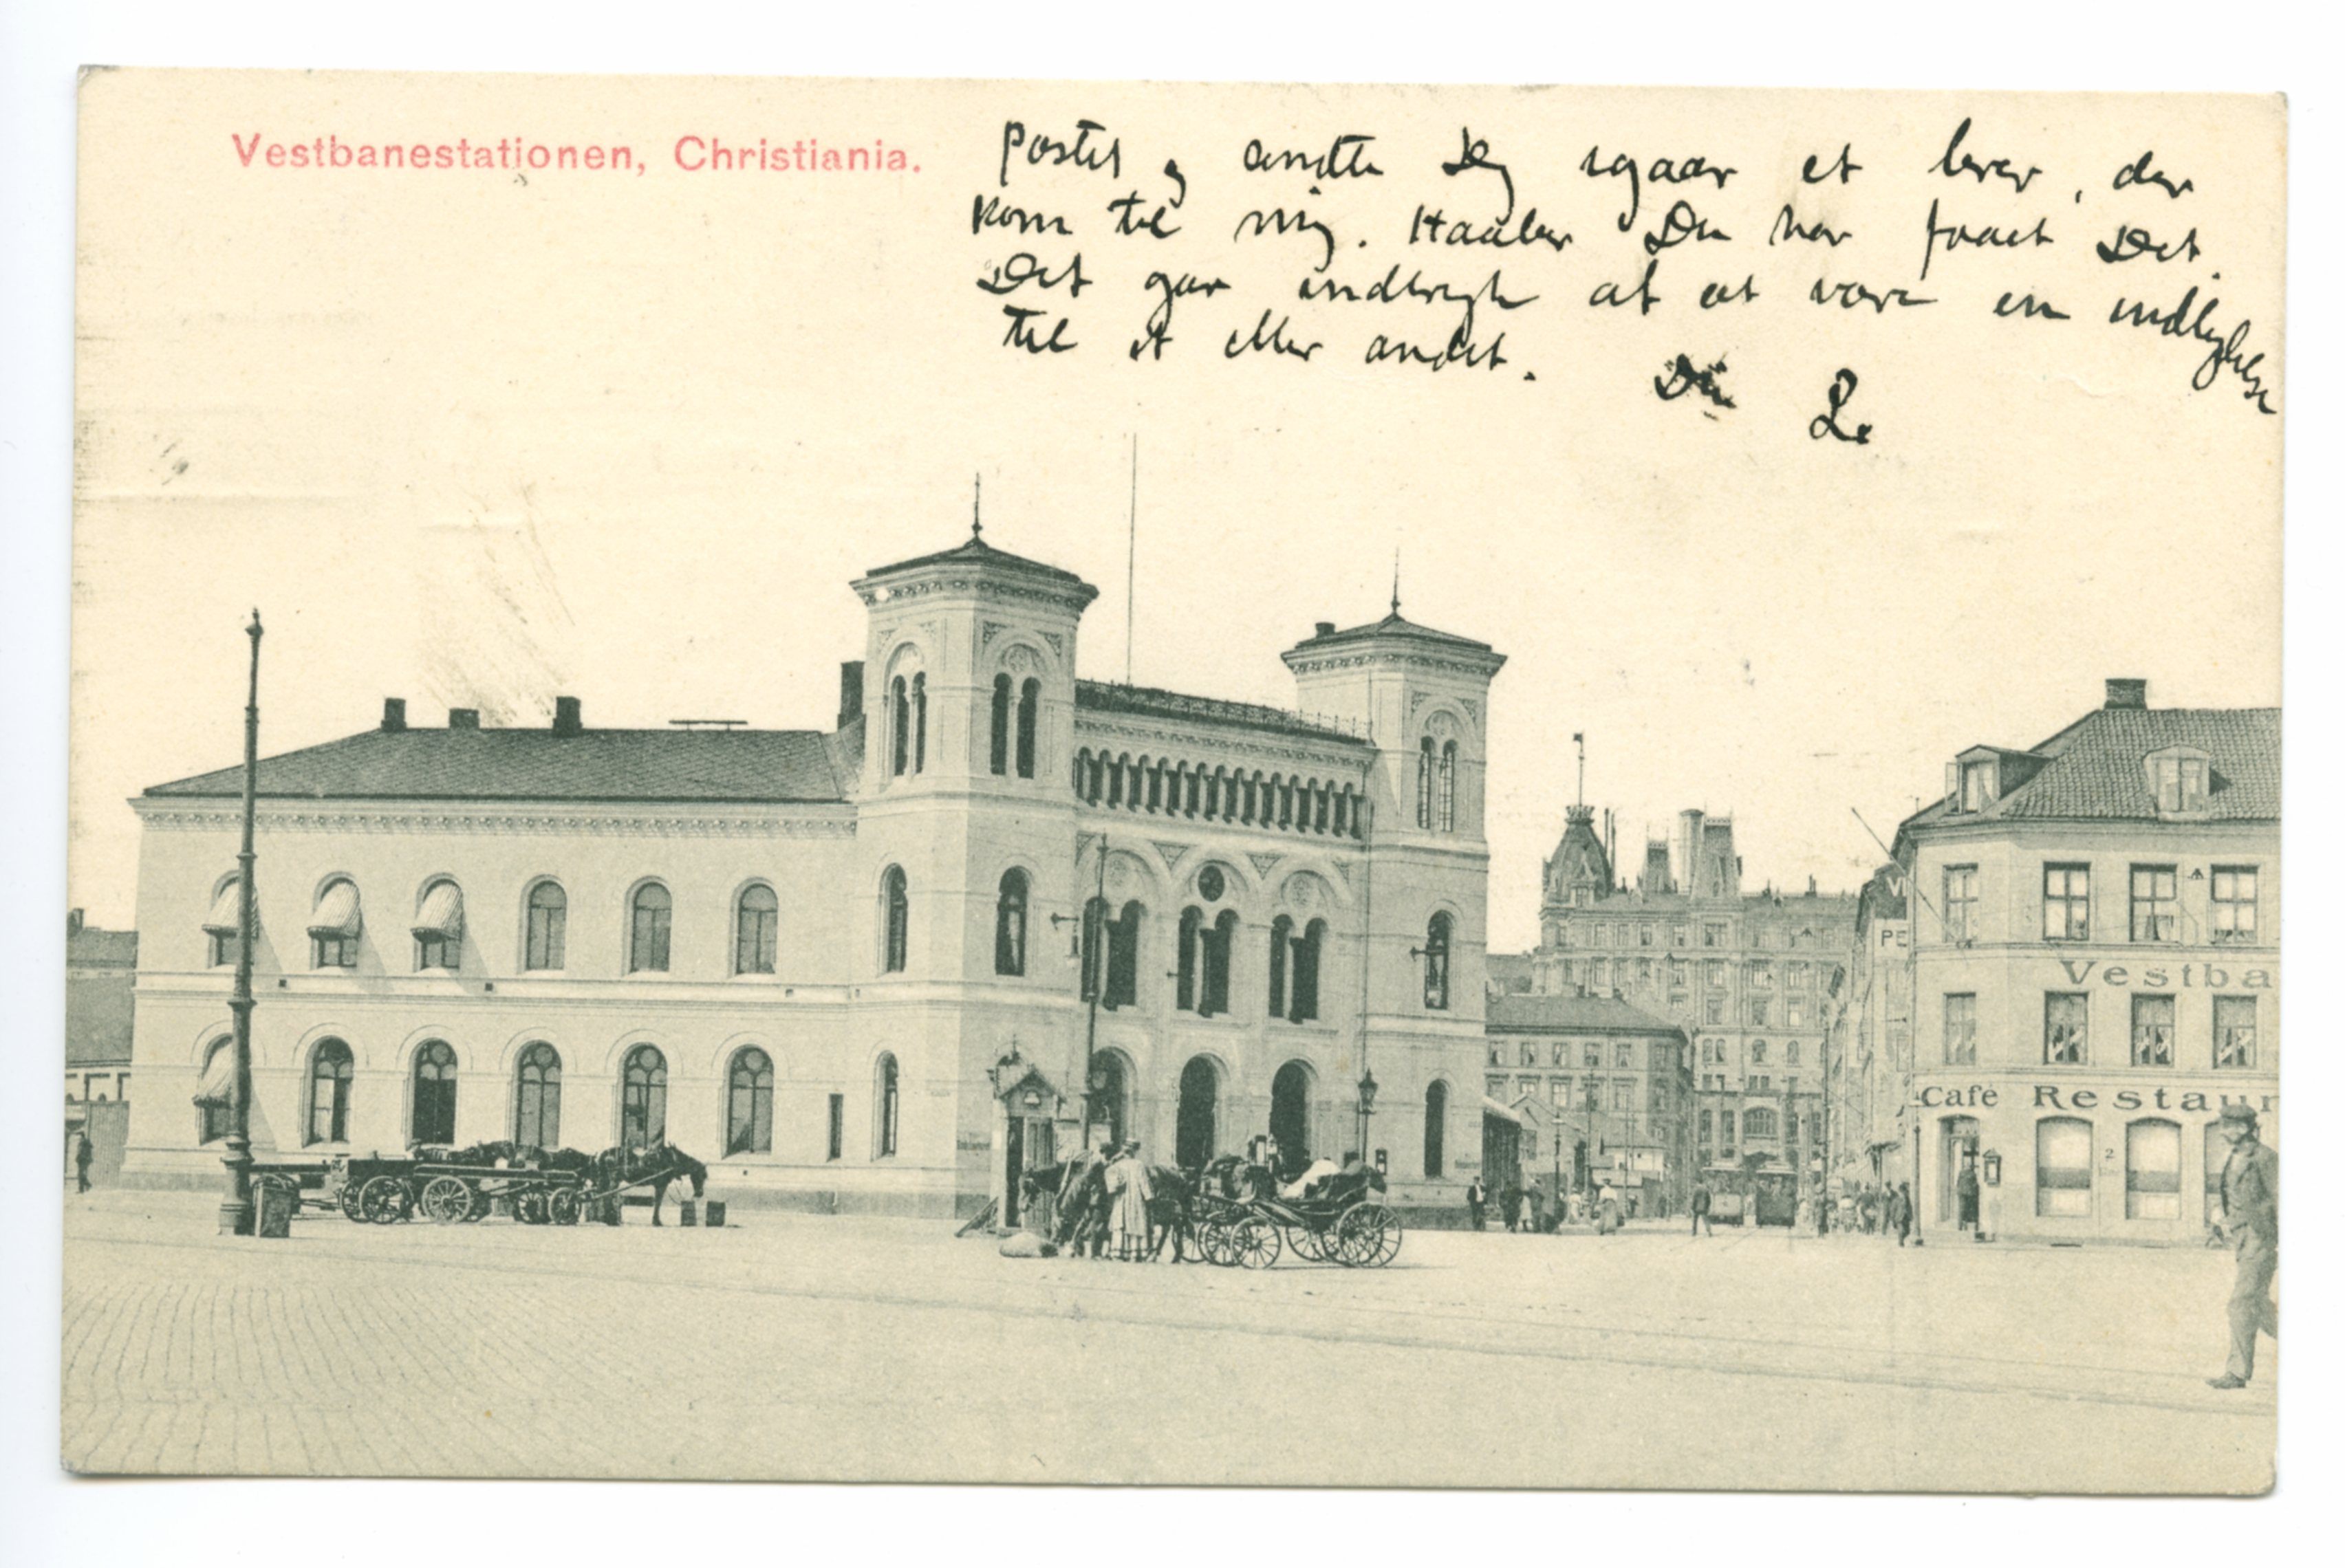 Vestbanestationen, Christiania.
Postet og sendte Deg igaar et brev, der
kom til mig. Haaber Du har faaet Det.
Det gav indtryk af at være en indbydelse
til et eller andet.
Din
L.
VI
PE
Vestba
Café Restaur
2